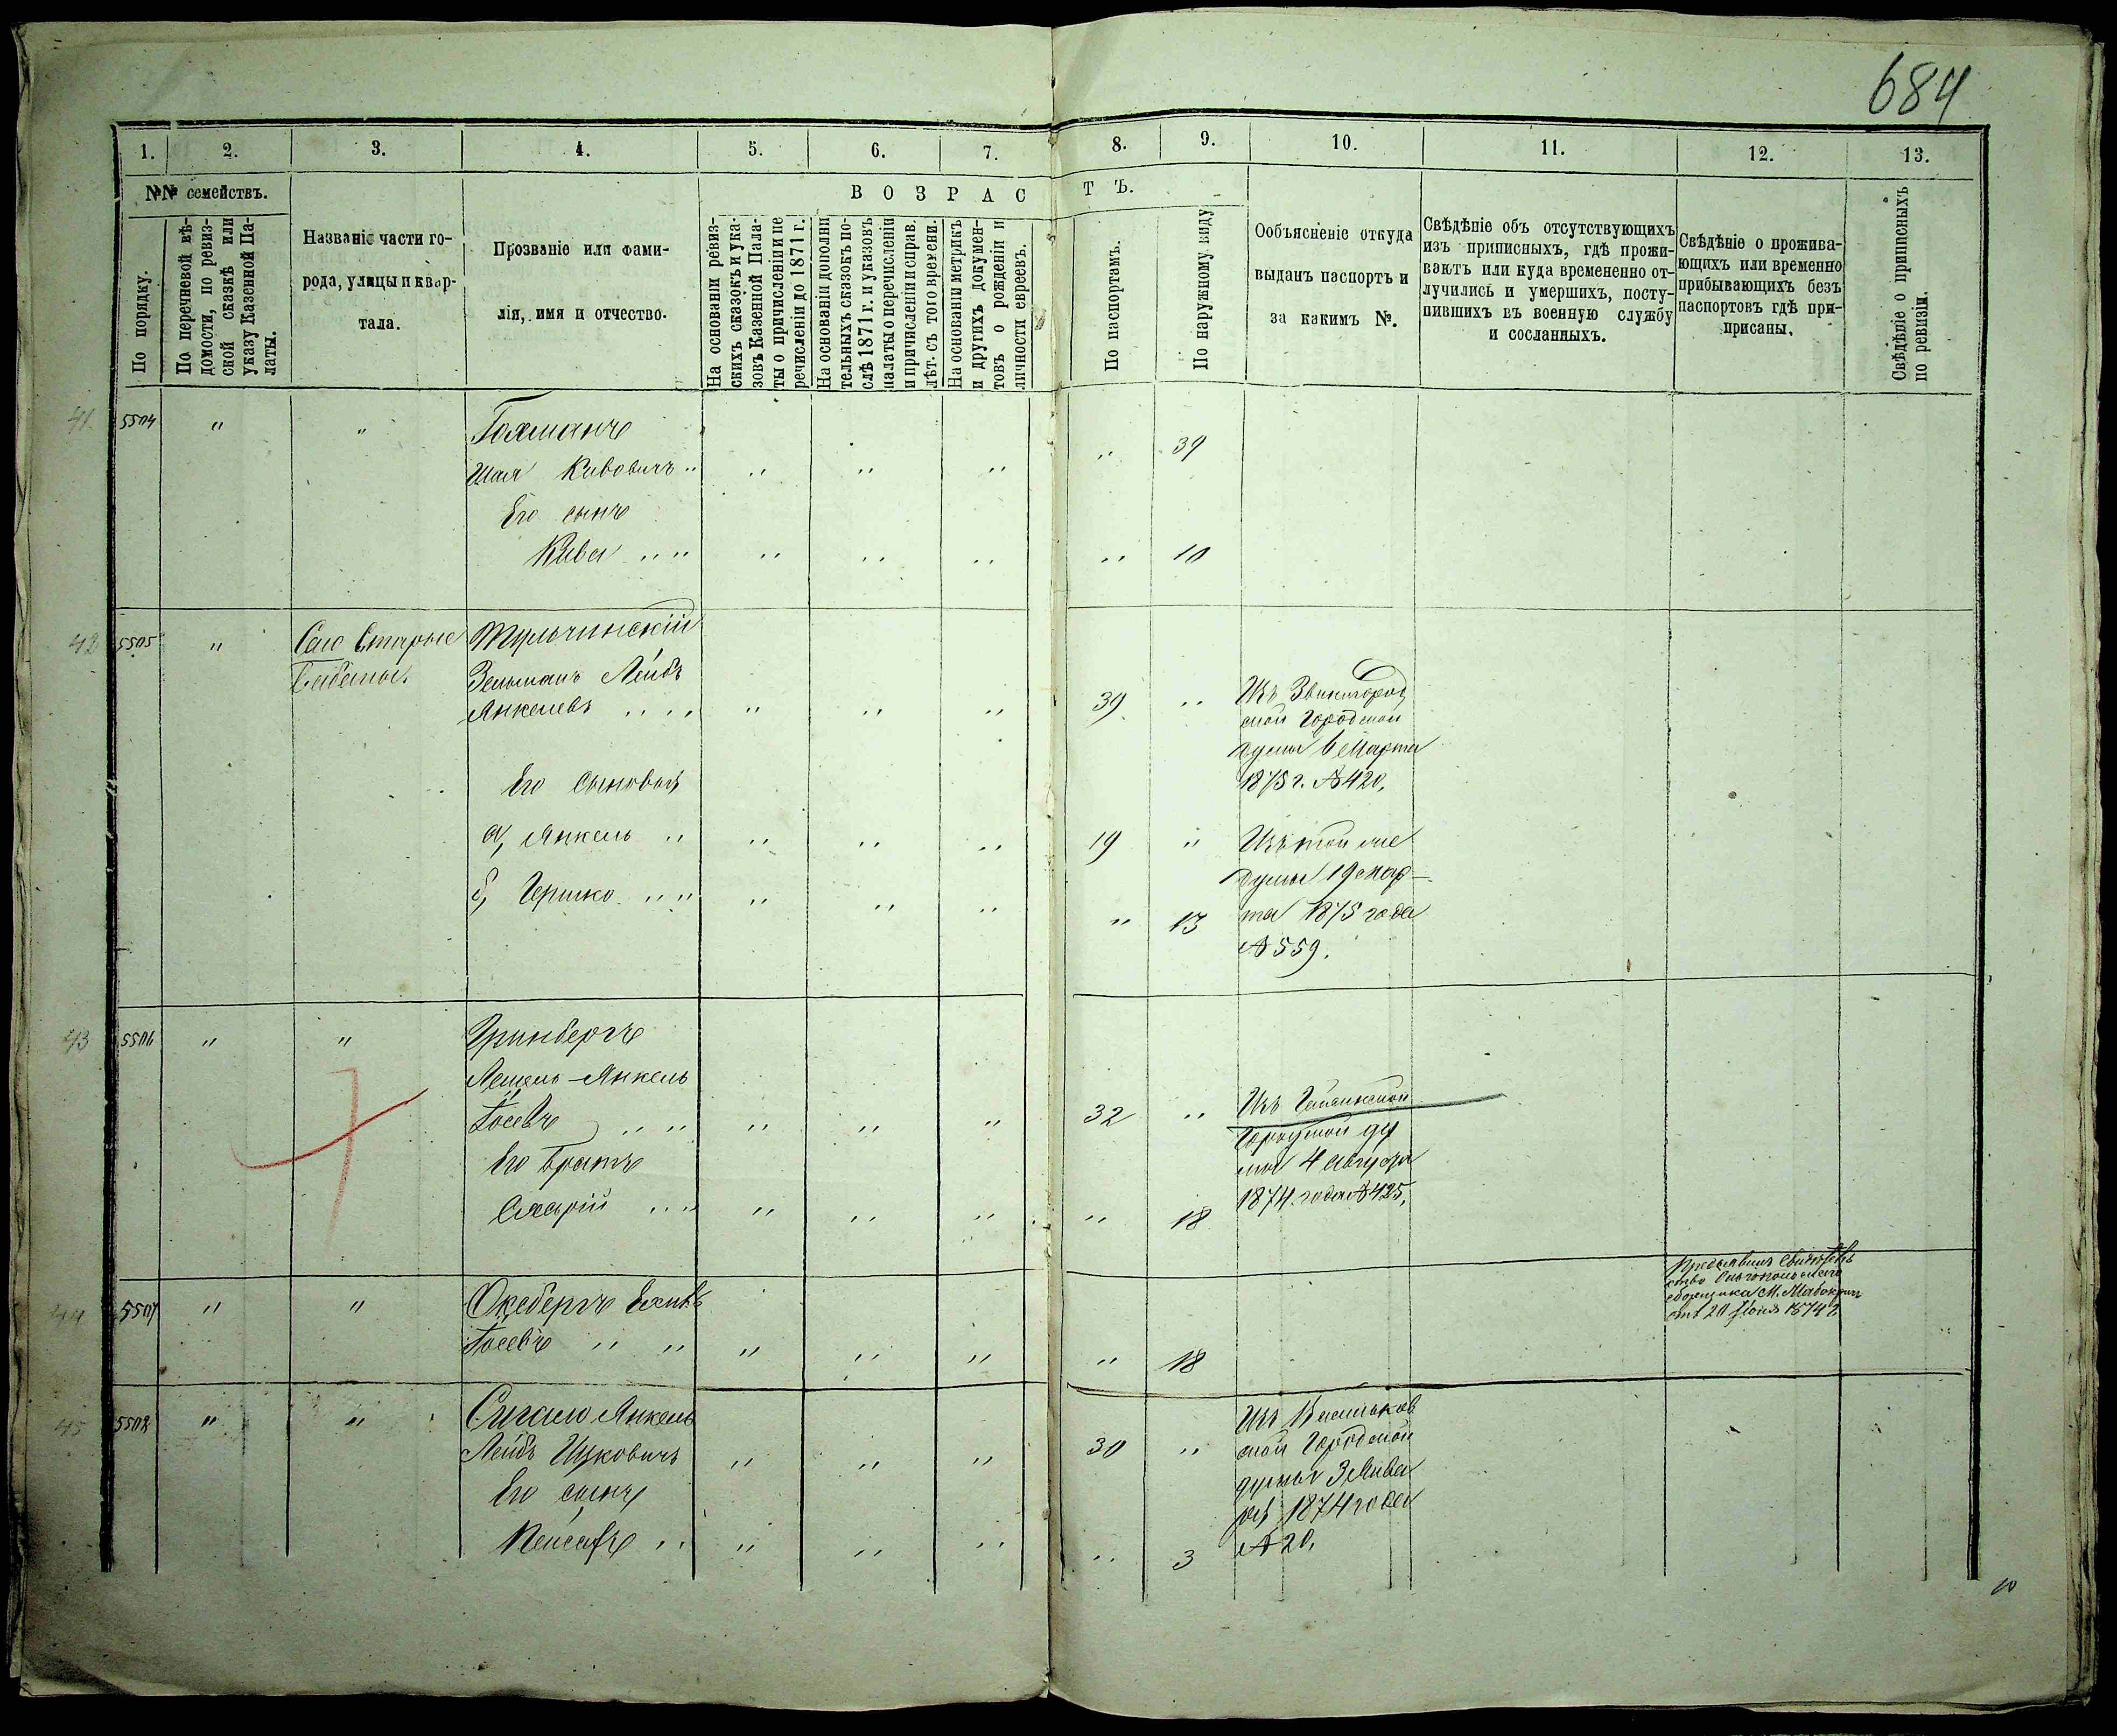 684
1. 2. 3. 4. 5. 6. 7. 8. 9. 10. 11. 12. 13.
№№ семействъ.
В О З Р А С Т Ъ.
По порядку.
По перечневой вѣ-
домости, по ревиз-
ской сказкѣ или
указу Казенной Па-
латы.
Названіе части го-
рода, улицы и квар-
тала.
Прозваніе или фами-
лія, имя и отчество.
На основаніи ревиз-
скихъ сказокъ и ука-
зовъ Казенной Пала-
ты о причисленіи и пе
речисленіи до 1871 г.
На основаніи дополни
тельныхъ сказокъ по-
слѣ 1871 г. и указовъ
палаты о перечисленіи
и причисленіи и справ.
лѣт. съ того времени.
На основаніи метрикъ
и другихъ докумен-
товъ о рожденіи и
личности евреевъ.
По паспортамъ.
По наружному виду
Ообъясненіе откуда
выданъ паспортъ и
за какимъ №.
Свѣдѣніе объ отсутствующихъ
изъ приписныхъ, гдѣ прожи-
ваютъ или куда времененно от-
лучились и умершихъ, посту-
пившихъ въ военную службу
и сосланныхъ.
Свѣдѣніе о прожива-
ющихъ или временно
прибывающихъ безъ
паспортовъ гдѣ при-
присаны.
Свѣдѣніе о приписныхъ
по ревизіи.
41 5504 " " Гохманъ
Шая Кивовичъ " " " " " 39
Его сынъ
Кива " " " " " " 10
42 5505 " Село Старые Тульчинскій
Бабаны. Зельманъ Лейбъ
Янкелевъ " " " " " 39 " Изъ Звенигород
ской Городской
думы 6 Марта
1875 г. №420,
Его сыновья
а, Янкель " " " " 19 " Изъ той же
думы 19 мар-
б, Гершко " " " " " " 13 та 1875 года
№559.
43 5506 " " Гринбергъ
Янкель
Іосевъ " " " " " 32 " Изъ
Городской ду
мы 4 августа
1874 года №425,
Его братъ
" " " " " " 18
44 5507 " "
Іосевъ " " " " " " 18
отъ 20 Іюня 1874 г.
45 5508 " " Сигалъ Янкель
Лейбъ Ицковичъ " " " 30 " Изъ Васильков
ской Городской
думы 3 Янва
ря 1874 года
№20.
Его сынъ
" " " " " 3
10